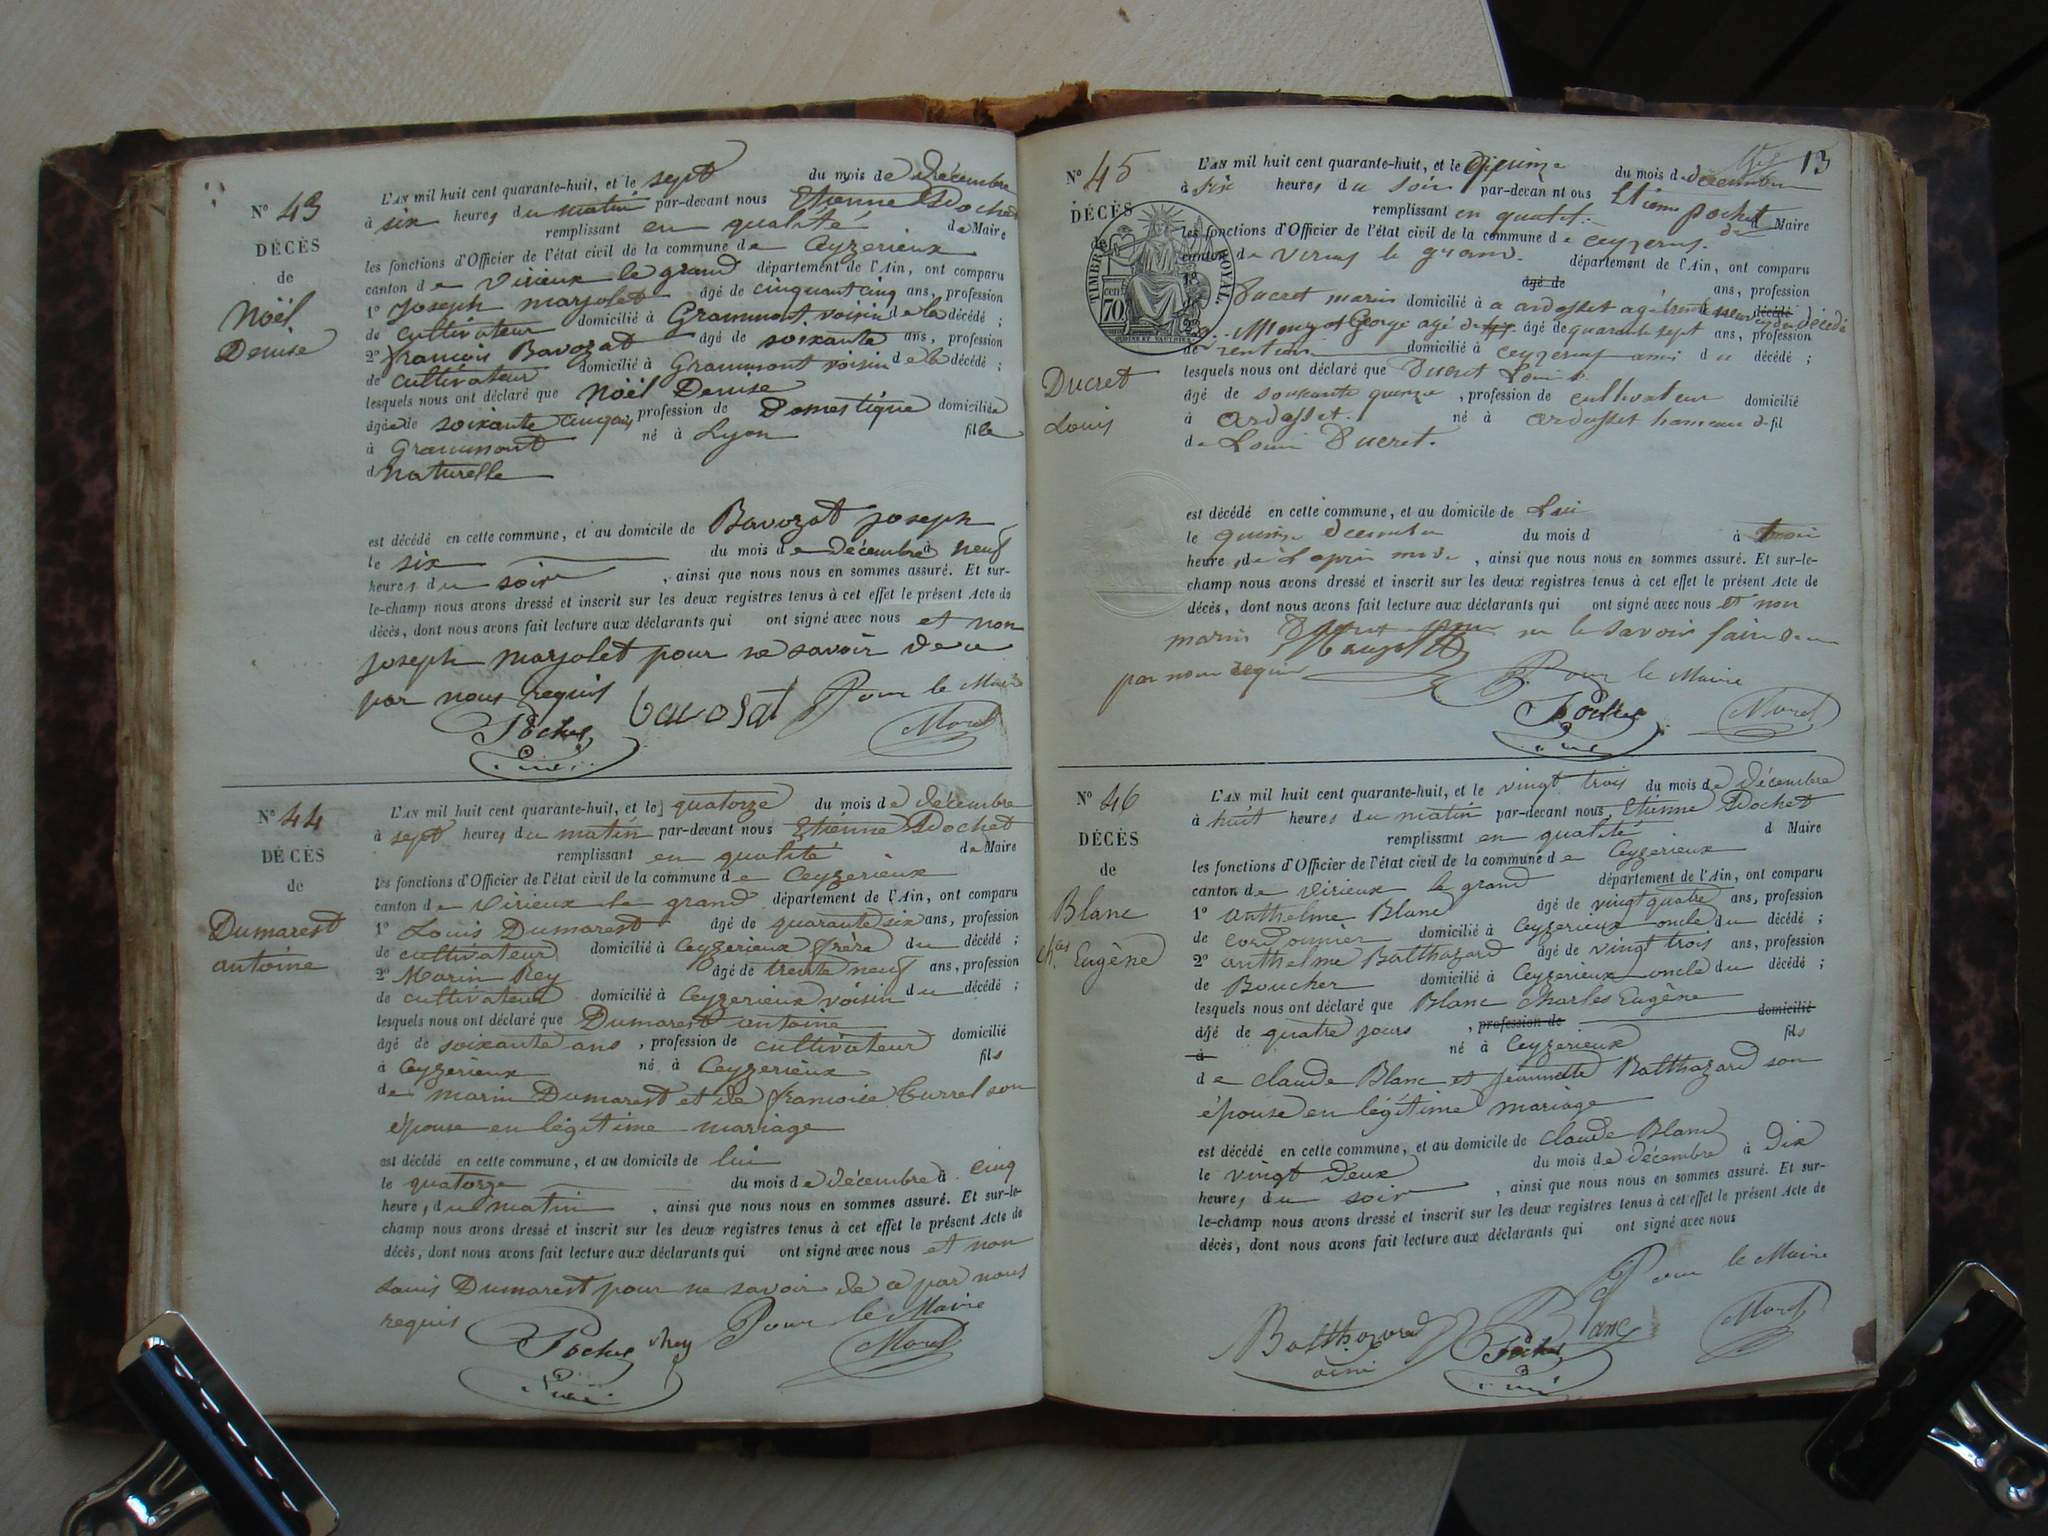 N° 43
DÉCÈS
de
Noël
Denise
L'AN mil huit cent quarante-huit, et le sept du mois de décembre
à six heures du matin par-devant nous Etienne Pochet
remplissant en qualité de Maire
les fonctions d'Officier de l'état civil de la commune de Ceyzerieux
canton de virieux le grand département de l'Ain, ont comparu
1° Joseph marjolet âgé de cinquant cinq ans, profession
de cultivateur domicilié à Grammont voisin de la décédé ;
2° francois Bavozat âgé de soixante ans, profession
de cultivateur domicilié à Grammont voisin de la décédé ;
lesquels nous ont déclaré que Noël Denise
âgée de soixante cinq ans profession de Domestique domiciliée
à Grammont né à Lyon fille
d naturelle
est décédé en cette commune, et au domicile de Bavozat joseph
le six du mois de décembre à neuf
heures du soir , ainsi que nous nous en sommes assuré. Et sur-
le-champ nous avons dressé et inscrit sur les deux registres tenus à cet effet le présent Acte de
décès, dont nous avons fait lecture aux déclarants qui ont signé avec nous et non
joseph marjolet pour ne savoir de ce
par nous requis
Pochet bavosat Pour le Maire
Morel
N° 44
DÉCÈS
de
Dumarest
antoine
L'AN mil huit cent quarante-huit, et le quatorze du mois de décembre
à sept heures du matin par-devant nous Etienne Pochet
remplissant en qualité de Maire
les fonctions d'Officier de l'état civil de la commune de Ceyzerieux
canton de virieux le grand département de l'Ain, ont comparu
1° Louis Dumarest âgé de quarante six ans, profession
de cultivateur domicilié à Ceyzerieux frère du décédé ;
2° Marin Rey âgé de trente neuf ans, profession
de cultivateur domicilié à Ceyzerieux voisin du décédé ;
lesquels nous ont déclaré que Dumarest antoine
âgé de soixante ans , profession de cultivateur domicilié
à Ceyzerieux né à Ceyzerieux fils
de marin Dumarest et de francoise Currel son
épouse en légitime mariage
est décédé en cette commune, et au domicile de lui
le quatorze du mois de décembre à cinq
heures du matin , ainsi que nous nous en sommes assuré. Et sur-le-
champ nous avons dressé et inscrit sur les deux registres tenus à cet effet le présent Acte de
décès, dont nous avons fait lecture aux déclarants qui ont signé avec nous et non
Louis Dumarest pour ne savoir de ce par nous
requis
Pochet Rey Pour le Maire
Morel
13
N° 45
DÉCÈS
de
TIMBRE ROYAL.
70 cent.
Ducret
Louis
L'AN mil huit cent quarante-huit, et le quinze du mois de décembre
à six heures du soir par-devant nous Etienne pochet
remplissant en qualit. d Maire
les fonctions d'Officier de l'état civil de la commune de
canton de le grand. département de l'Ain, ont comparu
1° Ducret marin domicilié à a ardosset âgé de ans, profession
2° George agé de âgé de quarante sept ans, profession
de rentier domicilié à ami du décédé ;
lesquels nous ont déclaré que Ducret Louis
âgé de soixante quinze , profession de cultivateur domicilié
à ardosset. né à ardosset hameau d. fil
de Louis Ducret.
est décédé en cette commune, et au domicile de Lui
le quinze decembre du mois d à trois
heures de , ainsi que nous nous en sommes assuré. Et sur-le-
champ nous avons dressé et inscrit sur les deux registres tenus à cet effet le présent Acte de
décès, dont nous avons fait lecture aux déclarants qui ont signé avec nous et non
marin ne le savoir faire de ce
par nous requis Pour le Maire
Pochet Morel
N° 46
DÉCÈS
de
Blanc
Ch.es Eugène
L'AN mil huit cent quarante-huit, et le vingt trois du mois de décembre
à huit heures du matin par-devant nous Etienne Pochet
remplissant en qualité d Maire
les fonctions d'Officier de l'état civil de la commune de Ceyzerieux
canton de virieux le grand département de l'Ain, ont comparu
1° anthelme Blanc âgé de vingt quatre ans, profession
de cordonnier domicilié à Ceyzerieux oncle du décédé ;
2° anthelme Balthazard âgé de vingt trois ans, profession
de Boucher domicilié à Ceyzerieux oncle du décédé ;
lesquels nous ont déclaré que Blanc Charles Eugène
âgé de quatre jours , profession de domicilié
à né à Ceyzerieux fils
de claude Blanc et jeannette Balthazard son
épouse en légitime mariage
est décédé en cette commune, et au domicile de claude Blanc
le vingt deux du mois de décembre à dix
heures du soir , ainsi que nous nous en sommes assuré. Et sur-
le-champ nous avons dressé et inscrit sur les deux registres tenus à cet effet le présent Acte de
décès, dont nous avons fait lecture aux déclarants qui ont signé avec nous
Pour le Maire
Balthazard Blanc Morel
Pochet